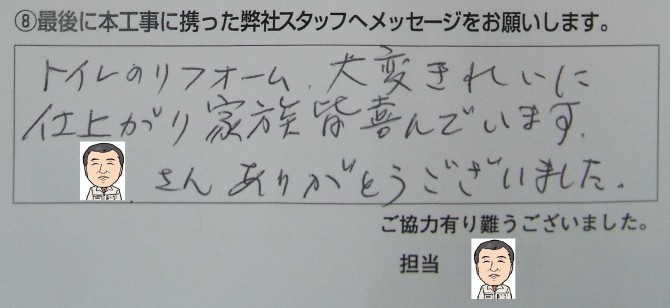 ⑧最後に本工事に携った弊社スタッフへメッセージをお願いします。
トイレのリフォーム、大変きれいに
仕上がり家族皆喜んでいます。
さんありがとうございました。
ご協力有り難うございました。
担当